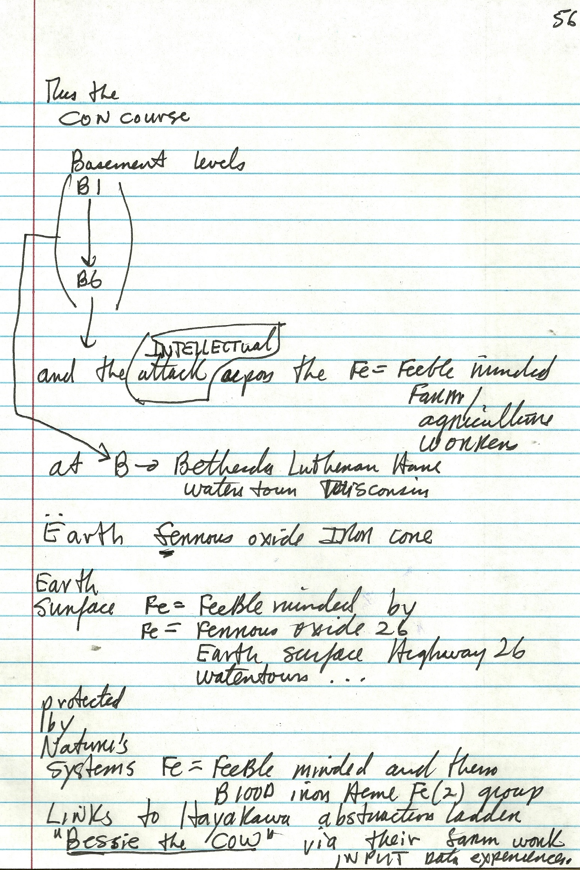 56
Thus the
CONCOURSE
Basement levels
B1
B6
INTELLECTUAL
and the attack upon the Fe= Feeble minded
Farm/
agriculture
workers
at B→ Bethesda Lutheran Home
Watertown Wisconsin
Earth ferrous oxide Iron core
Earth
Surface Fe= FeeBle minded by
Fe= Ferrous oxide 26
Earth surface Highway 26
Watertown ...
protected
by
Nature's
systems Fe= FeeBle minded and their
Blood iron Heme Fe(2) group
LINKS to Hayakawa abstraction ladder
"Bessie the Cow" via their farm work
INPUT data experiences.